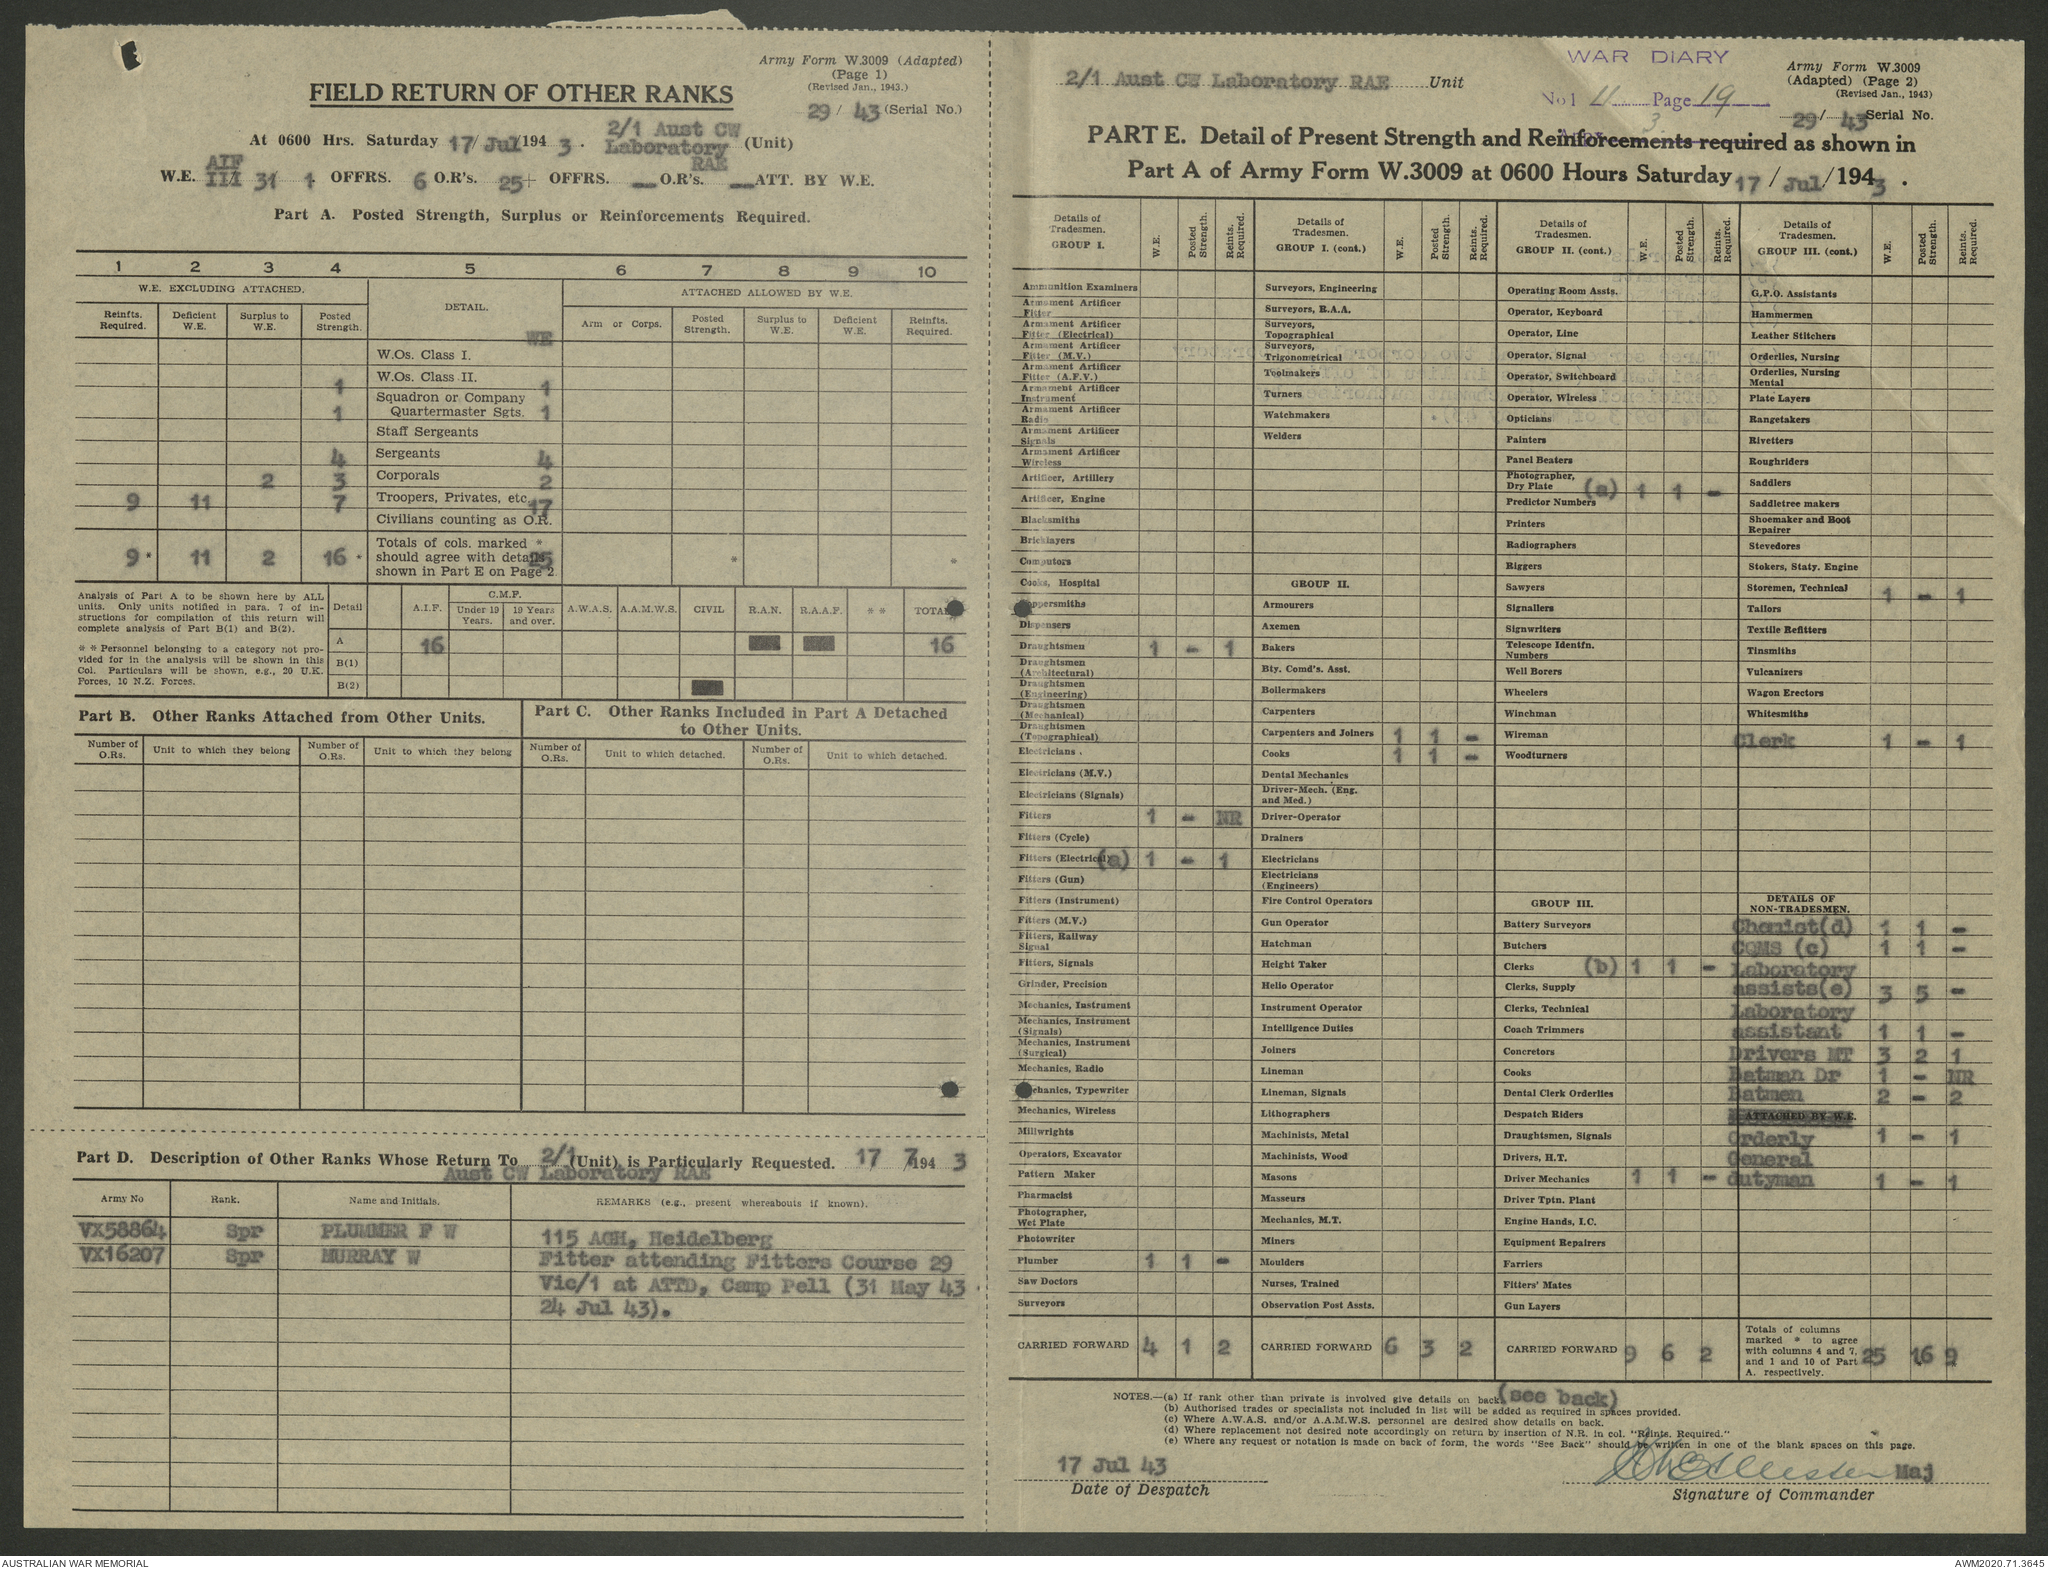 Army Form W.3009 (Adapted)
(Page 1)
(Revised Jan., 1943.)
FIELD RETURN OF OTHER RANKS
29/ 43 (Serial No.)
At 0600 Hrs. Saturday 17/Jul/1943. 2/1 Aust CW Laboratory RAE (Unit)
W.E. AIF III 31 1 OFFRS. 6 O.R's. 25+ OFFRS. — O.R's. — ATT. BY W.E.
Part A. Posted Strength, Surplus or Reinforcements Required.
1 2 3 4 5 6 7 8 9 10
W.E. EXCLUDING ATTACHED. DETAIL. ATTACHED ALLOWED BY W.E.
Reinfts. Required. Deficient W.E. Surplus to W.E. Posted Strength. WE Arm or Corps. Posted Strength. Surplus to W.E. Deficient W.E. Reinfts. Required.
W.Os. Class I.
1 W.Os. Class II. 1
1 Squadron or Company Quartermaster Sgts. 1
Staff Sergeants
4 Sergeants 4
2 3 Corporals 2
9 11 7 Troopers, Privates, etc. 17
Civilians counting as O.R.
9* 11 2 16* Totals of cols. marked * should agree with details shown in Part E on Page 2 25 * *
Analysis of Part A to be shown here by ALL
units. Only units notified in para. 7 of in-
structions for compilation of this return will
complete analysis of Part B(1) and B(2).
* * Personnel belonging to a category not pro-
vided for in the analysis will be shown in this
Col. Particulars will be shown, e.g., 20 U.K.
Forces, 10 N.Z. Forces.
Detail A.I.F. C.M.F. Under 19 Years. 19 Years and over. A.W.A.S. A.A.M.W.S. CIVIL R.A.N. R.A.A.F. * * TOTAL
A 16 16
B(1)
B(2)
Part B. Other Ranks Attached from Other Units.
Part C. Other Ranks Included in Part A Detached
to Other Units.
Number of O.Rs. Unit to which they belong Number of O.Rs. Unit to which they belong Number of O.Rs. Unit to which detached. Number of O.Rs. Unit to which detached.
Part D. Description of Other Ranks Whose Return To 2/1 (Unit) is Particularly Requested. 17 7 1943
Aust CW Laboratory RAE
Army No Rank. Name and Initials. REMARKS (e.g., present whereabouts if known).
VX58864 Spr PLUMMER F W 115 AGH, Heidelberg
VX16207 Spr MURRAY W Fitter attending Fitters Course 29
Vic/1 at ATTD, Camp Pell (31 May 43 -
24 Jul 43).
2/1 Aust CW Laboratory RAE Unit
WAR DIARY
No 1 11 Page 19
3.
Army Form W.3009
(Adapted) (Page 2)
(Revised Jan., 1943)
29/ 43 Serial No.
PART E. Detail of Present Strength and Reinforcements required as shown in
Part A of Army Form W.3009 at 0600 Hours Saturday 17/Jul/1943.
Details of Tradesmen. GROUP I. W.E. Posted Strength. Reints. Required.
Ammunition Examiners
Armament Artificer Fitter
Armament Artificer Fitter (Electrical)
Armament Artificer Fitter (M.V.)
Armament Artificer Fitter (A.F.V.)
Armament Artificer Instrument
Armament Artificer Radio
Armament Artificer Signals
Armament Artificer Wireless
Artificer, Artillery
Artificer, Engine
Blacksmiths
Bricklayers
Computors
Cooks, Hospital
Coppersmiths
Dispensers
Draughtsmen 1 - 1
Draughtsmen (Architectural)
Draughtsmen (Engineering)
Draughtsmen (Mechanical)
Draughtsmen (Topographical)
Electricians .
Electricians (M.V.)
Electricians (Signals)
Fitters 1 - NR
Fitters (Cycle)
Fitters (Electrical) (a) 1 - 1
Fitters (Gun)
Fitters (Instrument)
Fitters (M.V.)
Fitters, Railway Signal
Fitters, Signals
Grinder, Precision
Mechanics, Instrument
Mechanics, Instrument (Signals)
Mechanics, Instrument (Surgical)
Mechanics, Radio
Mechanics, Typewriter
Mechanics, Wireless
Millwrights
Operators, Excavator
Pattern Maker
Pharmacist
Photographer, Wet Plate
Photowriter
Plumber 1 1 -
Saw Doctors
Surveyors
CARRIED FORWARD 4 1 2
Details of Tradesmen. GROUP I. (cont.) W.E. Posted Strength. Reints. Required.
Surveyors, Engineering
Surveyors, R.A.A.
Surveyors, Topographical
Surveyors, Trigonometrical
Toolmakers
Turners
Watchmakers
Welders
GROUP II.
Armourers
Axemen
Bakers
Bty. Comd's. Asst.
Boilermakers
Carpenters
Carpenters and Joiners 1 1 -
Cooks 1 1 -
Dental Mechanics
Driver-Mech. (Eng. and Med.)
Driver-Operator
Drainers
Electricians
Electricians (Engineers)
Fire Control Operators
Gun Operator
Hatchman
Height Taker
Helio Operator
Instrument Operator
Intelligence Duties
Joiners
Lineman
Lineman, Signals
Lithographers
Machinists, Metal
Machinists, Wood
Masons
Masseurs
Mechanics, M.T.
Miners
Moulders
Nurses, Trained
Observation Post Assts.
CARRIED FORWARD 6 3 2
Details of Tradesmen. GROUP II. (cont.) W.E. Posted Strength. Reints. Required.
Operating Room Assts.
Operator, Keyboard
Operator, Line
Operator, Signal
Operator, Switchboard
Operator, Wireless
Opticians
Painters
Panel Beaters
Photographer, Dry Plate (a) 1 1 -
Predictor Numbers
Printers
Radiographers
Riggers
Sawyers
Signallers
Signwriters
Telescope Identfn. Numbers
Well Borers
Wheelers
Winchman
Wireman
Woodturners
GROUP III.
Battery Surveyors
Butchers
Clerks (b) 1 1 -
Clerks, Supply
Clerks, Technical
Coach Trimmers
Concretors
Cooks
Dental Clerk Orderlies
Despatch Riders
Draughtsmen, Signals
Drivers, H.T.
Driver Mechanics 1 1 -
Driver Tptn. Plant
Engine Hands, I.C.
Equipment Repairers
Farriers
Fitters' Mates
Gun Layers
CARRIED FORWARD 9 6 2
Details of Tradesmen. GROUP III. (cont.) W.E. Posted Strength. Reints. Required.
G.P.O. Assistants
Hammermen
Leather Stitchers
Orderlies, Nursing
Orderlies, Nursing Mental
Plate Layers
Rangetakers
Rivetters
Roughriders
Saddlers
Saddletree makers
Shoemaker and Boot Repairer
Stevedores
Stokers, Staty. Engine
Storemen, Technical 1 - 1
Tailors
Textile Refitters
Tinsmiths
Vulcanizers
Wagon Erectors
Whitesmiths
Clerk 1 - 1
DETAILS OF NON-TRADESMEN.
Chemist(d) 1 1 -
CQMS (c) 1 1 -
Laboratory
assists(e) 3 5 -
Laboratory
assistant 1 1 -
Drivers MT 3 2 1
Batman Dr 1 - NR
Batmen 2 - 2
ATTACHED BY W.E.
Orderly 1 - 1
General
dutyman 1 - 1
Totals of columns marked * to agree with columns 4 and 7, and 1 and 10 of Part A. respectively. 25 16 9
NOTES.—(a) If rank other than private is involved give details on back. (see back)
(b) Authorised trades or specialists not included in list will be added as required in spaces provided.
(c) Where A.W.A.S. and/or A.A.M.W.S. personnel are desired show details on back.
(d) Where replacement not desired note accordingly on return by insertion of N.R. in col. "Reints. Required."
(e) Where any request or notation is made on back of form, the words "See Back" should be written in one of the blank spaces on this page.
17 Jul 43
Date of Despatch
Maj
Signature of Commander
AUSTRALIAN WAR MEMORIAL
AWM2020.71.3645